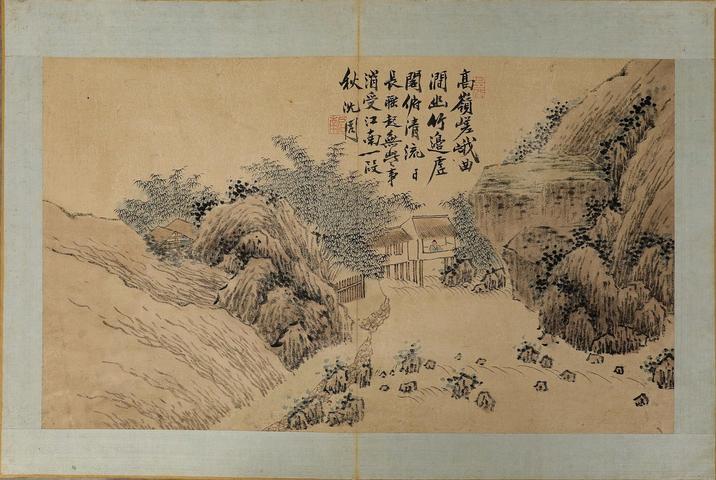 高嶺嵯峨曲
澗幽竹邊虛
閣俯清流日
長睡起無些事
消受江南一段
秋 沈周